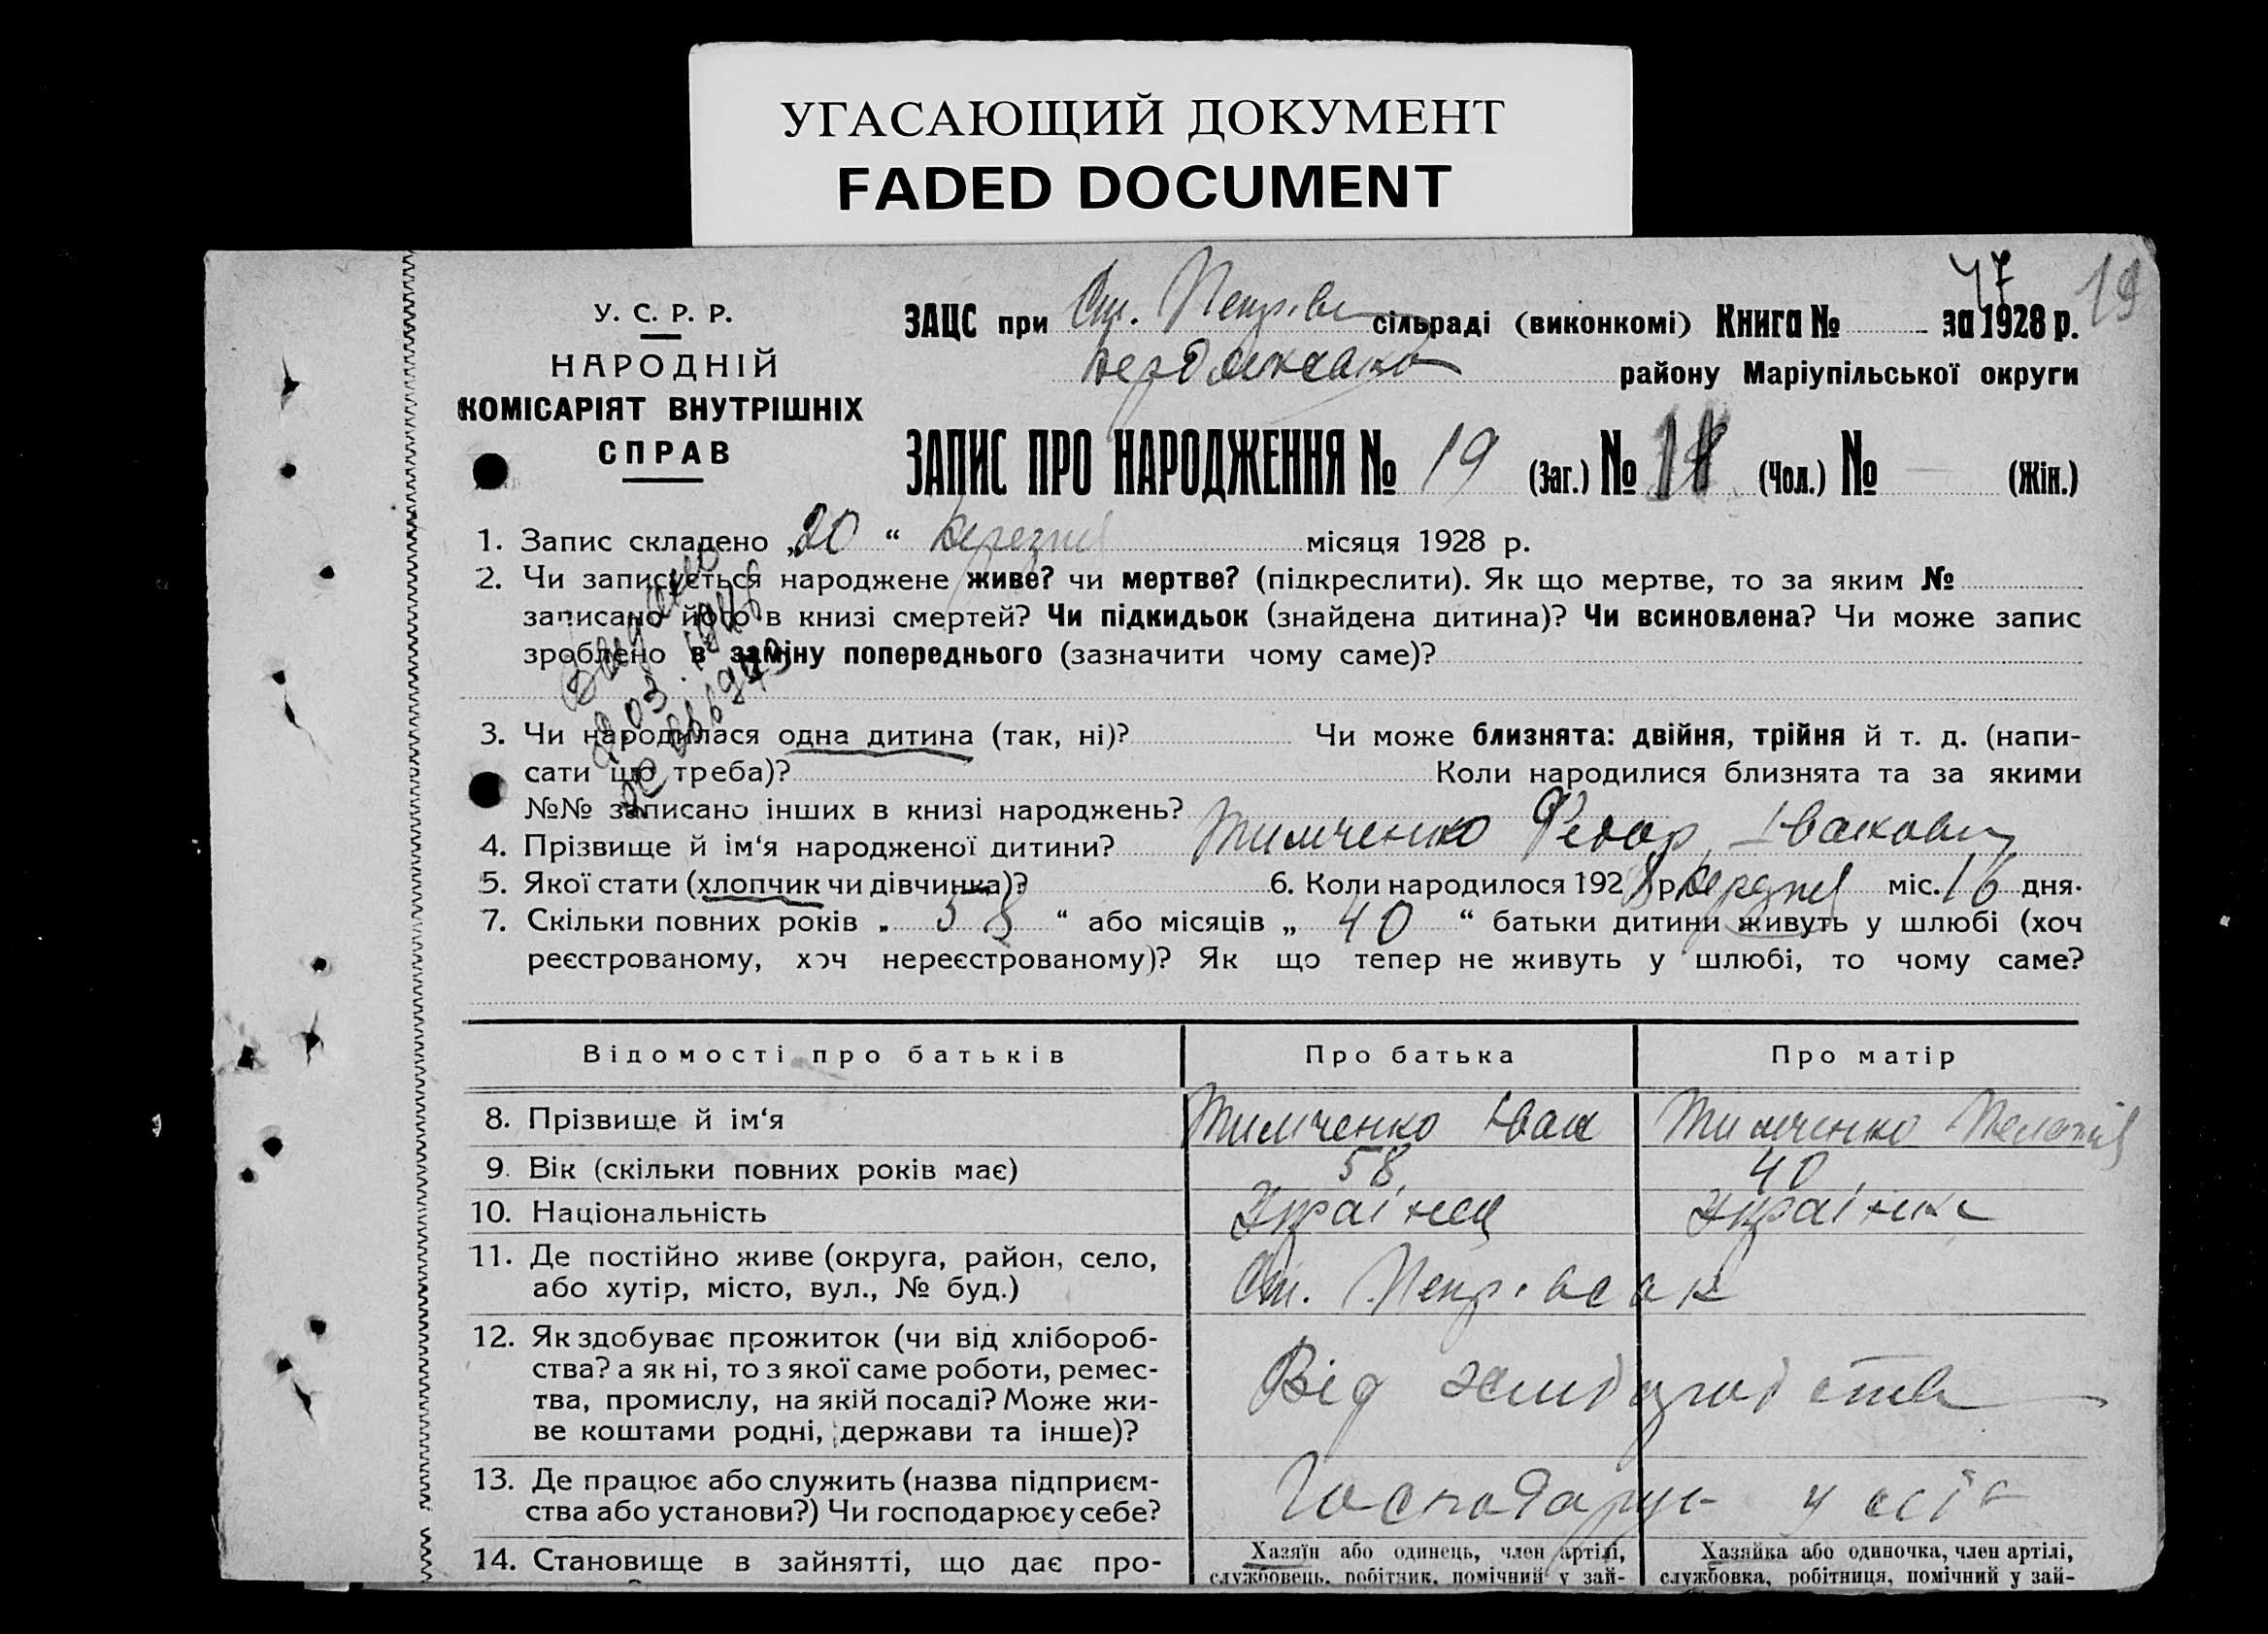 УГАСАЮЩИЙ ДОКУМЕНТ
FADED DOCUMENT
47
19
У. С. Р. Р.
НАРОДНІЙ
КОМІСАРІЯТ ВНУТРІШНІХ
СПРАВ
ЗАЦС при Ст. сільраді (виконкомі) Книга № за 1928 р.
району Маріупільської округи
ЗАПИС ПРО НАРОДЖЕННЯ № 19 (Заг.) № 18 (Чол.) № — (Жін.)
1. Запис складено „20“ березня місяця 1928 р.
2. Чи записується народжене живе? чи мертве? (підкреслити). Як що мертве, то за яким №
записано його в книзі смертей? Чи підкидьок (знайдена дитина)? Чи всиновлена? Чи може запис
зроблено в заміну попереднього (зазначити чому саме)?
3. Чи народилася одна дитина (так, ні)? Чи може близнята: двійня, трійня й т. д. (напи-
сати що треба)? Коли народилися близнята та за якими
№№ записано інших в книзі народжень?
4. Прізвище й ім‘я народженої дитини? Тимченко Федор Іванович
5. Якої стати (хлопчик чи дівчинка)? 6. Коли народилося 1928 р березня міс. 16 дня.
7. Скільки повних років „ 58 “ або місяців „ 40 “ батьки дитини живуть у шлюбі (хоч
реєстрованому, хоч нереєстрованому)? Як що тепер не живуть у шлюбі, то чому саме?
Відомості про батьків Про батька Про матір
8. Прізвище й ім‘я Тимченко Іван Тимченко
9. Вік (скільки повних років має) 58 40
10. Національність Українец Українка
11. Де постійно живе (округа, район, село,
або хутір, місто, вул., № буд.) Ст.
12. Як здобуває прожиток (чи від хлібороб-
ства? а як ні, то з якої саме роботи, ремес-
тва, промислу, на якій посаді? Може жи-
ве коштами родні, держави та інше)? Від
13. Де працює або служить (назва підприєм-
ства або установи?) Чи господарює у себе? Господарує у
14. Становище в зайнятті, що дає про- Хазяїн або одинець, член артілі, Хазяйка або одиночка, член артілі,
службовець, робітник, помічний у зай- службовка, робітниця, помічний у зай-